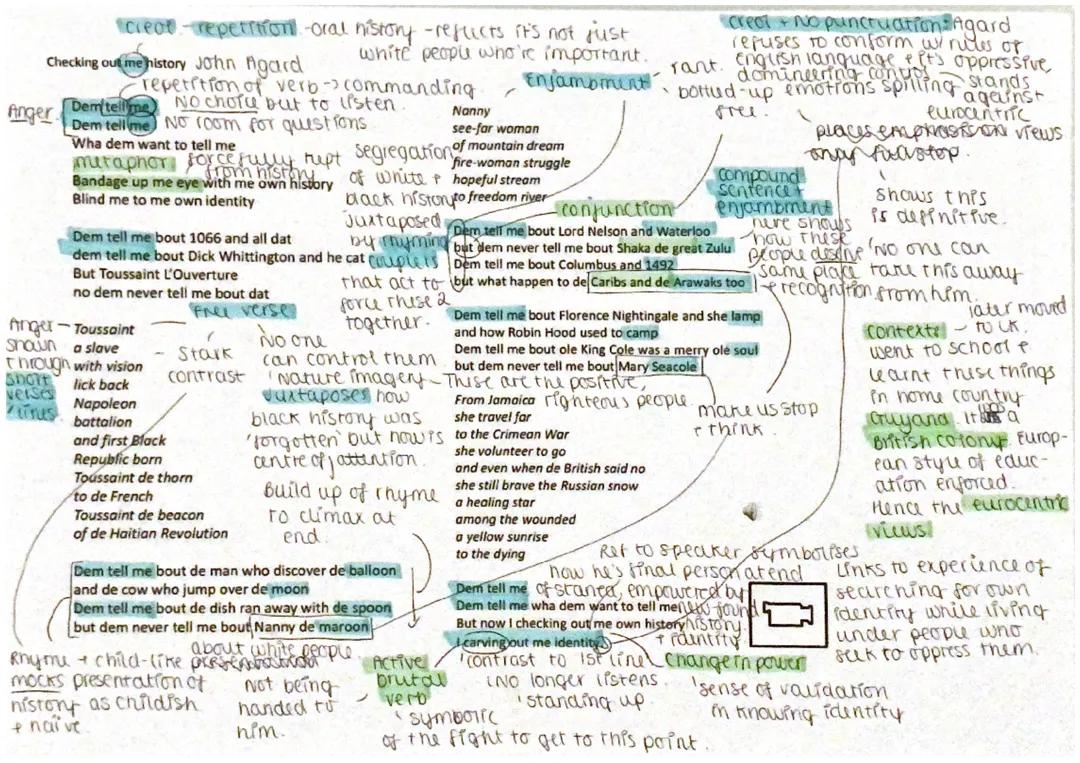 creol - repetition - oral history - reflects it's not just
white people who're important.
creol + No punctuation: Agard
refuses to conform w/ rules of
english language + it's oppressive,
domineering control
stands
against
eurocentric
views
Checking out me history John Agard
repetition of verb -> commanding.
Anger.
Dem tell me NO choice but to listen.
Dem tell me No room for questions
Wha dem want to tell me
metaphor forcefully kept
from history
Bandage up me eye with me own history
Blind me to me own identity
Enjambment
rant.
bottled-up emotions spilling
free.
places emphasis on
only full stop.
shows this
is definitive.
'No one can
take this away
from him.
Nanny
see-far woman
of mountain dream
fire-woman struggle
hopeful stream
to freedom river
Segregation
of white +
black history
juxtaposed
by rhyming
couplets
that act to
force these 2
together.
Dem tell me bout 1066 and all dat
dem tell me bout Dick Whittington and he cat
But Toussaint L'Ouverture
no dem never tell me bout dat
conjunction
compound
sentence +
enjambment
here shows
how these
people deserve
same place
+ recognition
Dem tell me bout Lord Nelson and Waterloo
but dem never tell me bout Shaka de great Zulu
Dem tell me bout Columbus and 1492
but what happen to de Caribs and de Arawaks too
free verse
Anger
shown
through
short
verses
/lines
Toussaint
a slave
with vision
lick back
Napoleon
battalion
and first Black
Republic born
Toussaint de thorn
to de French
Toussaint de beacon
of de Haitian Revolution
- Stark
contrast
No one
can control them
'Nature imagery
juxtaposes how
black history was
'forgotten' but now is
centre of attention.
Build up of rhyme
to climax at
end.
Dem tell me bout Florence Nightingale and she lamp
and how Robin Hood used to camp
Dem tell me bout ole King Cole was a merry ole soul
but dem never tell me bout Mary Seacole
These are the positive,
righteous people.
make us stop
+ think.
From Jamaica
she travel far
to the Crimean War
she volunteer to go
and even when de British said no
she still brave the Russian snow
a healing star
among the wounded
a yellow sunrise
to the dying
later moved
to UK.
contexts
went to school +
learnt these things
in home country
Guyana. It a
British colony. Europ-
ean style of educ-
ation enforced.
Hence the eurocentric
views.
Links to experience of
searching for own
identity while living
under people who
seek to oppress them.
Dem tell me bout de man who discover de balloon
and de cow who jump over de moon
Dem tell me bout de dish ran away with de spoon
but dem never tell me bout Nanny de maroon
Rhyme + child-like
mocks presentation of
history as childish
+ naive
about white people
Not being
handed to
him.
Ref to speaker symbolises
how he's final person at end
of stanza, empowered by
new found
history
+ identity
Dem tell me
Dem tell me wha dem want to tell me
But now I checking out me own history
I carving out me identity
Active
brutal
verb
'symbolic
of the fight to get to this point.
'contrast to 1st line
(No longer listens.
'standing up
Change in power
'sense of validation
in knowing identity